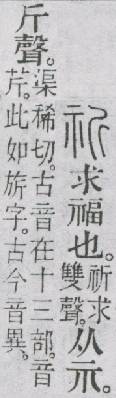 祈求福也。祈求雙聲。从示。
斤聲。渠稀切。古音在十三部。音芹。此如旂字。古今音異。